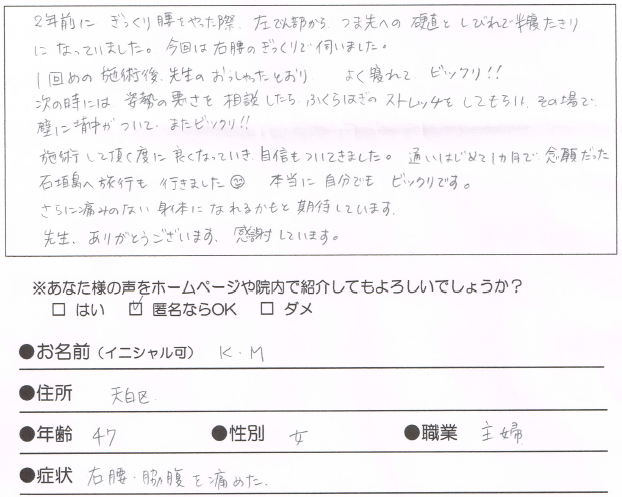 2年前に ぎっくり腰をやった際、左でん部から、つま先への 硬直としびれで半寝たきり
になっていました。今回は右腰のぎっくりで伺いました。
1回めの 施術後、先生の おっしゃったとおり よく寝れて ビックリ!!
次の時には、姿勢の悪さを 相談したら、ふくらはぎの ストレッチをしてもらい、その場で、
壁に背中がついて、またビックリ!!
施術して頂く度に 良くなっていき 自信もついてきました。 通いはじめて1カ月で 念願だった
石垣島へ旅行も 行きました☺ 本当に 自分でも ビックリです。
さらに痛みのない 身体に なれるかもと 期待しています。
先生、ありがとうございます、感謝しています。
※あなた様の声をホームページや院内で紹介してもよろしいでしょうか?
□ はい ☑ 匿名ならOK □ ダメ
●お名前(イニシャル可) K.M
●住所 天白区.
●年齢 47 ●性別 女 ●職業 主婦
●症状 右腰・脇腹を痛めた.